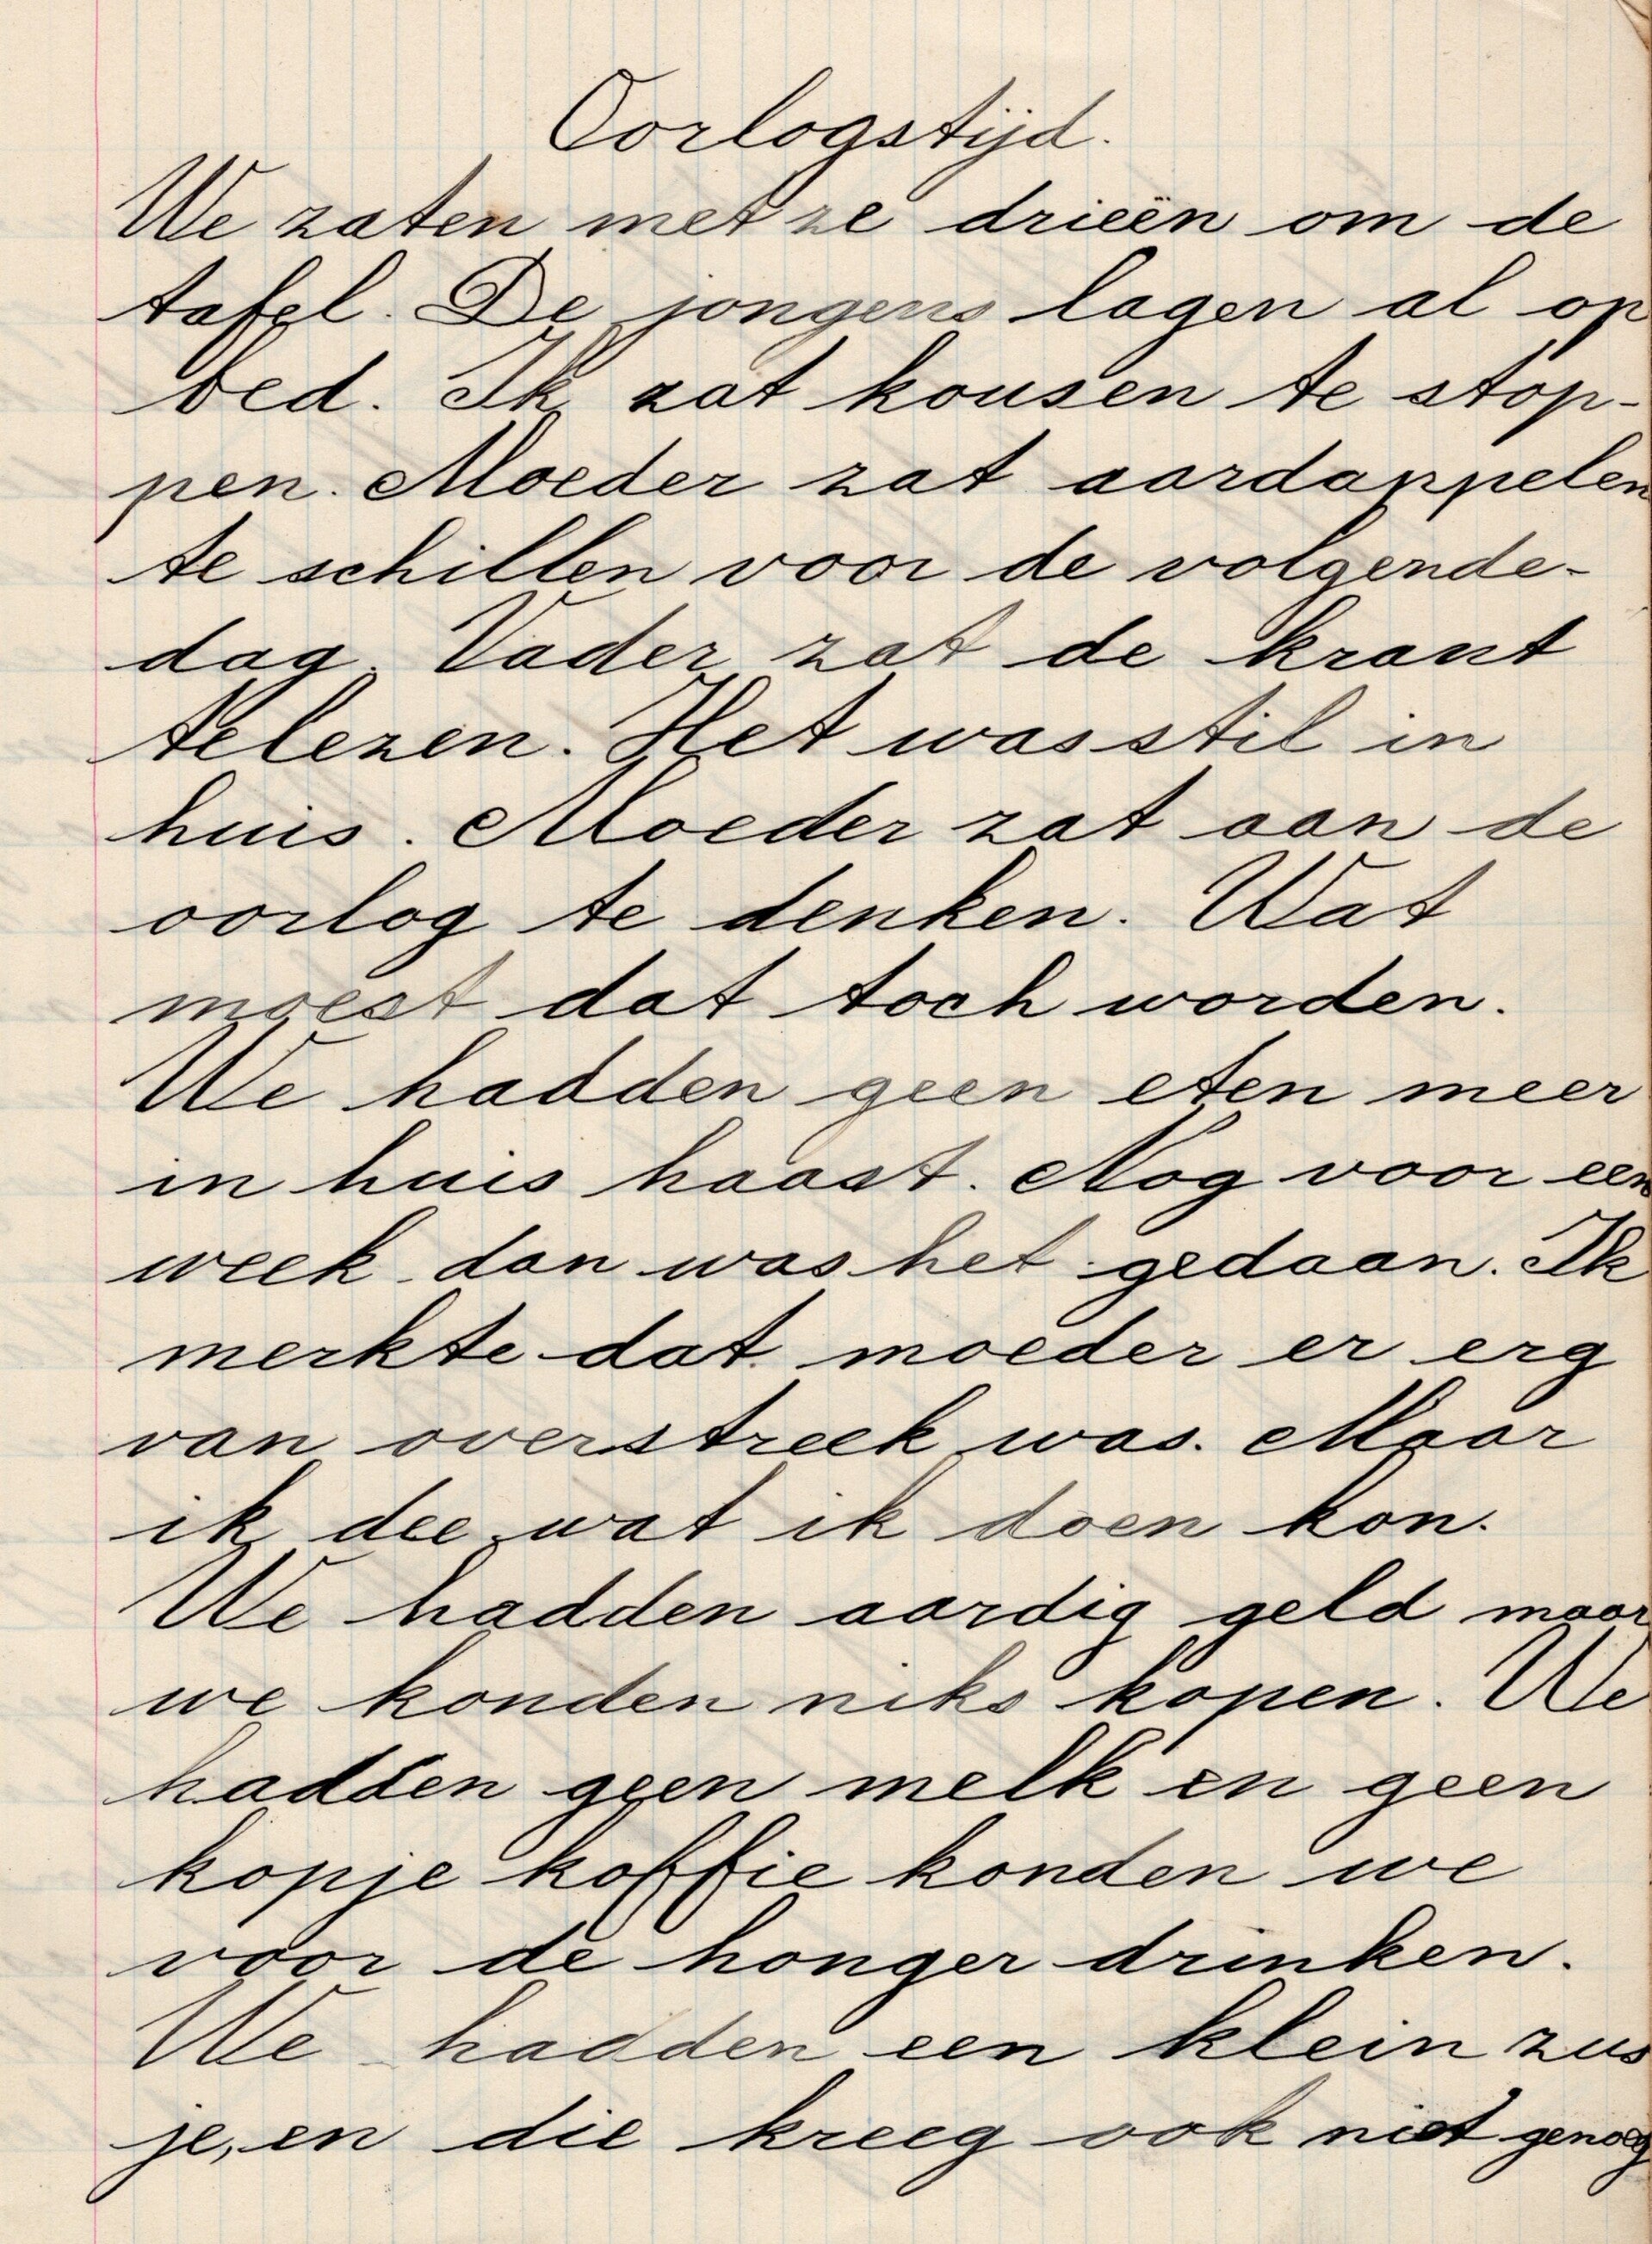 Oorlogstijd.
We zaten met ze drieën om de
tafel. De jongens lagen al op
bed. Ik zat kousen te stop-
pen. Moeder zat aardappelen
te schillen voor de volgende-
dag. Vader zat de krant
te lezen. Het was stil in
huis. Moeder zat aan de
oorlog te denken. Wat
moest dat toch worden.
We hadden geen eten meer
in huis haast. Nog voor een
week dan was het gedaan. Ik
merkte dat moeder er erg
van overstreek was. Maar
ik dee wat ik doen kon.
We hadden aardig geld maar
we konden niks kopen. We
hadden geen melk en geen
kopje koffie konden we
voor de honger drinken.
We hadden een klein zus
je, en die kreeg ook niet genoeg